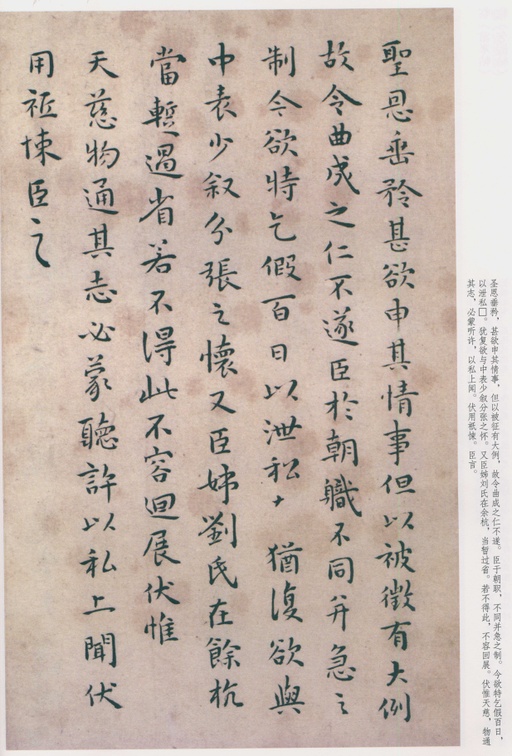 聖恩垂矜甚欲申其情事但以被徵有大例
故令曲成之仁不遂臣於朝職不同并急之
制今欲特乞假百日以泄私 猶復欲與
中表少叙分張之懷又臣姊劉氏在餘杭
當暫過省若不得此不容迴展伏惟
天慈物通其志必蒙聽許以私上聞伏
用祗悚臣之
圣恩垂矜，甚欲申其情事，但以被征有大例，故令曲成之仁不遂。臣于朝职，不同并急之制。今欲特乞假百日，
以泄私□。犹复欲与中表少叙分张之怀。又臣姊刘氏在余杭，当暂过省。若不得此，不容回展。伏惟天慈，物通
其志，必蒙听许，以私上闻。伏用祗悚。臣言。